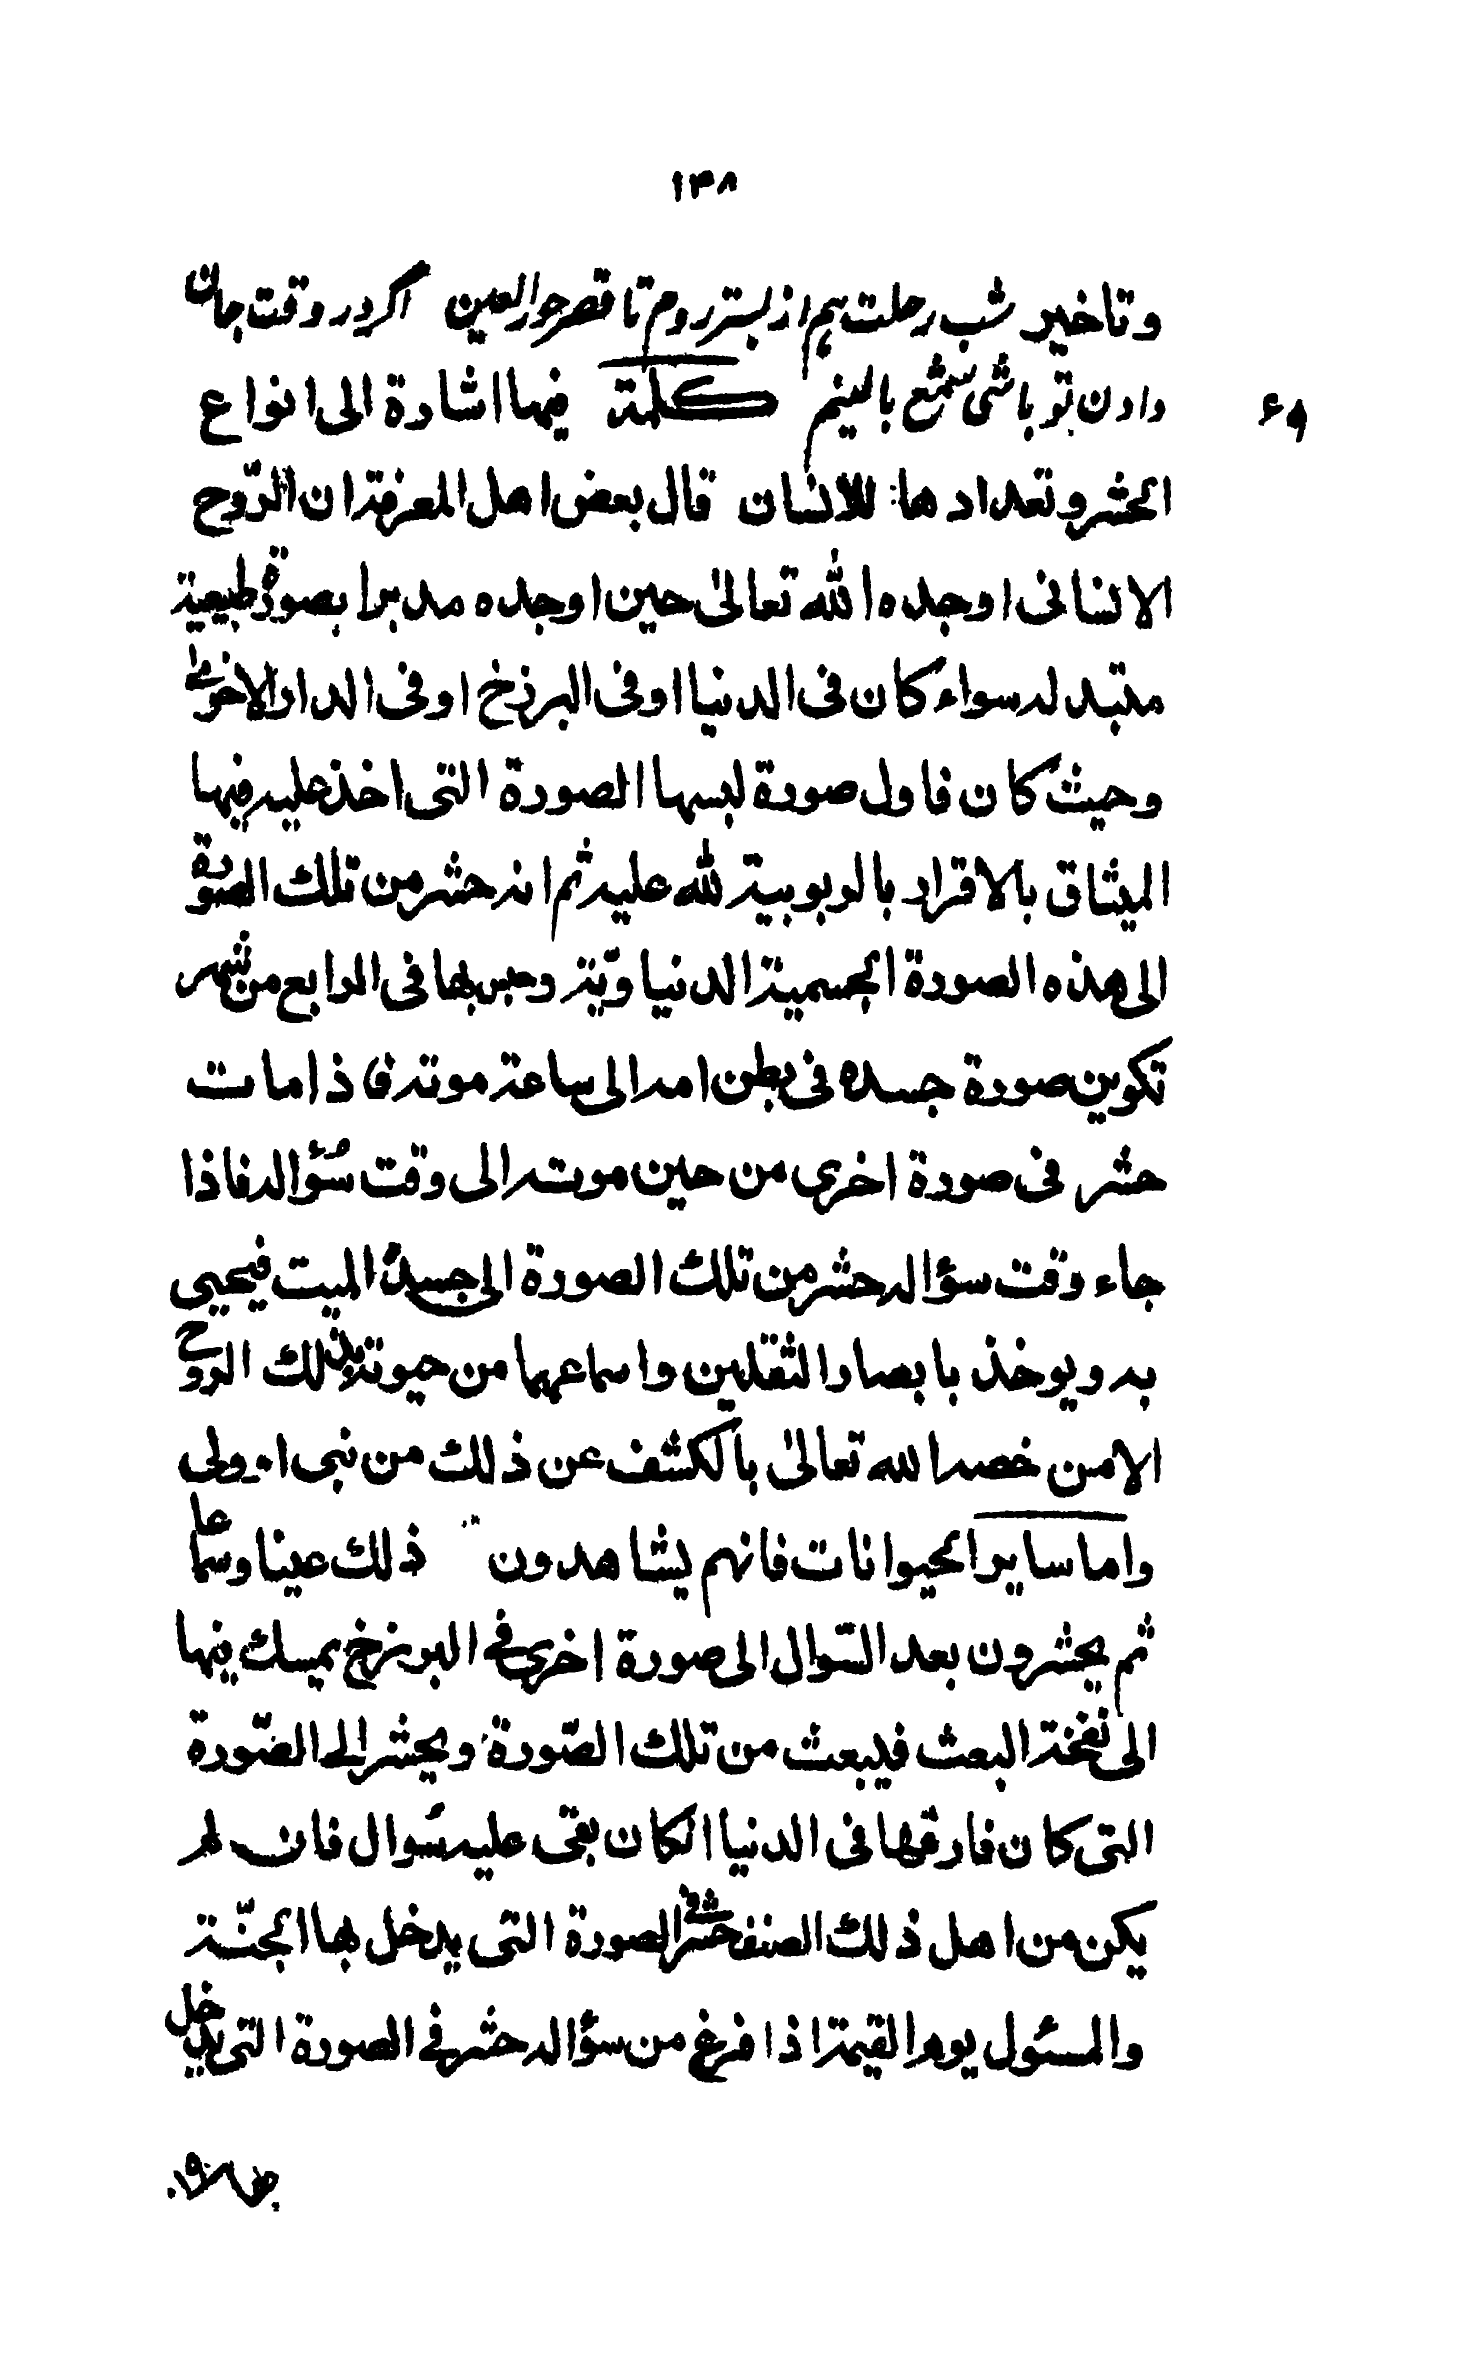 ۱۳۸
وتاخير شب رحلت هم از بستر روم تا قصر حور العين اگر در وقت جان
دادن تو باشی شمع بالینم كلمة فيها اشارة الى انواع
۶۹
الحشر وتعدادها للانسان قال بعض اهل المعرفة ان الرّوح
الانسانى اوجده الله تعالى حين اوجده مدبرا بصورة طبيعية
متبدله سواء كان فى الدنيا اوفى البرزخ اوفى الدار الاخرى
وحيث كان فاول صورة لبسها الصورة التى اخذ عليه فيها
الميثاق بالاقرار بالربوبية لله عليه ثم انه حشر من تلك الصورة
الى هذه الصورة الجسمية الدنياويّة وحبس بها فى الرابع من شهر
تكوين صورة جسده فى بطن امه الى ساعة موته فاذا مات
حشر فى صورة اخرى من حين موته الى وقت سُؤاله فاذا
جاء وقت سؤاله حشر من تلك الصورة الى جسده الميت فيحيى
به ويوخذ بابصار الثقلين واسماعهما من حيوته بذلك الروح
الامن خصه الله تعالى بالكشف عن ذلك من نبى او ولى
واما ساير الحيوانات فانهم يشاهدون ذلك عينا وسماعا
ثم يحشرون بعد السّوال الى صورة اخرى فى البرزخ يمسك فيها
الى نفخة البعث فيبعث من تلك الصّورة ويحشر الى الصّورة
التى كان فارقها فى الدنيا الكان بقى عليه سُوال فان لم
يكن من اهل ذلك الصنف حشر فى الصورة التى يدخل بها الجنّة
والمسئول يوم القيمة اذا فرغ من سؤاله حشر فى الصورة التى يدخل